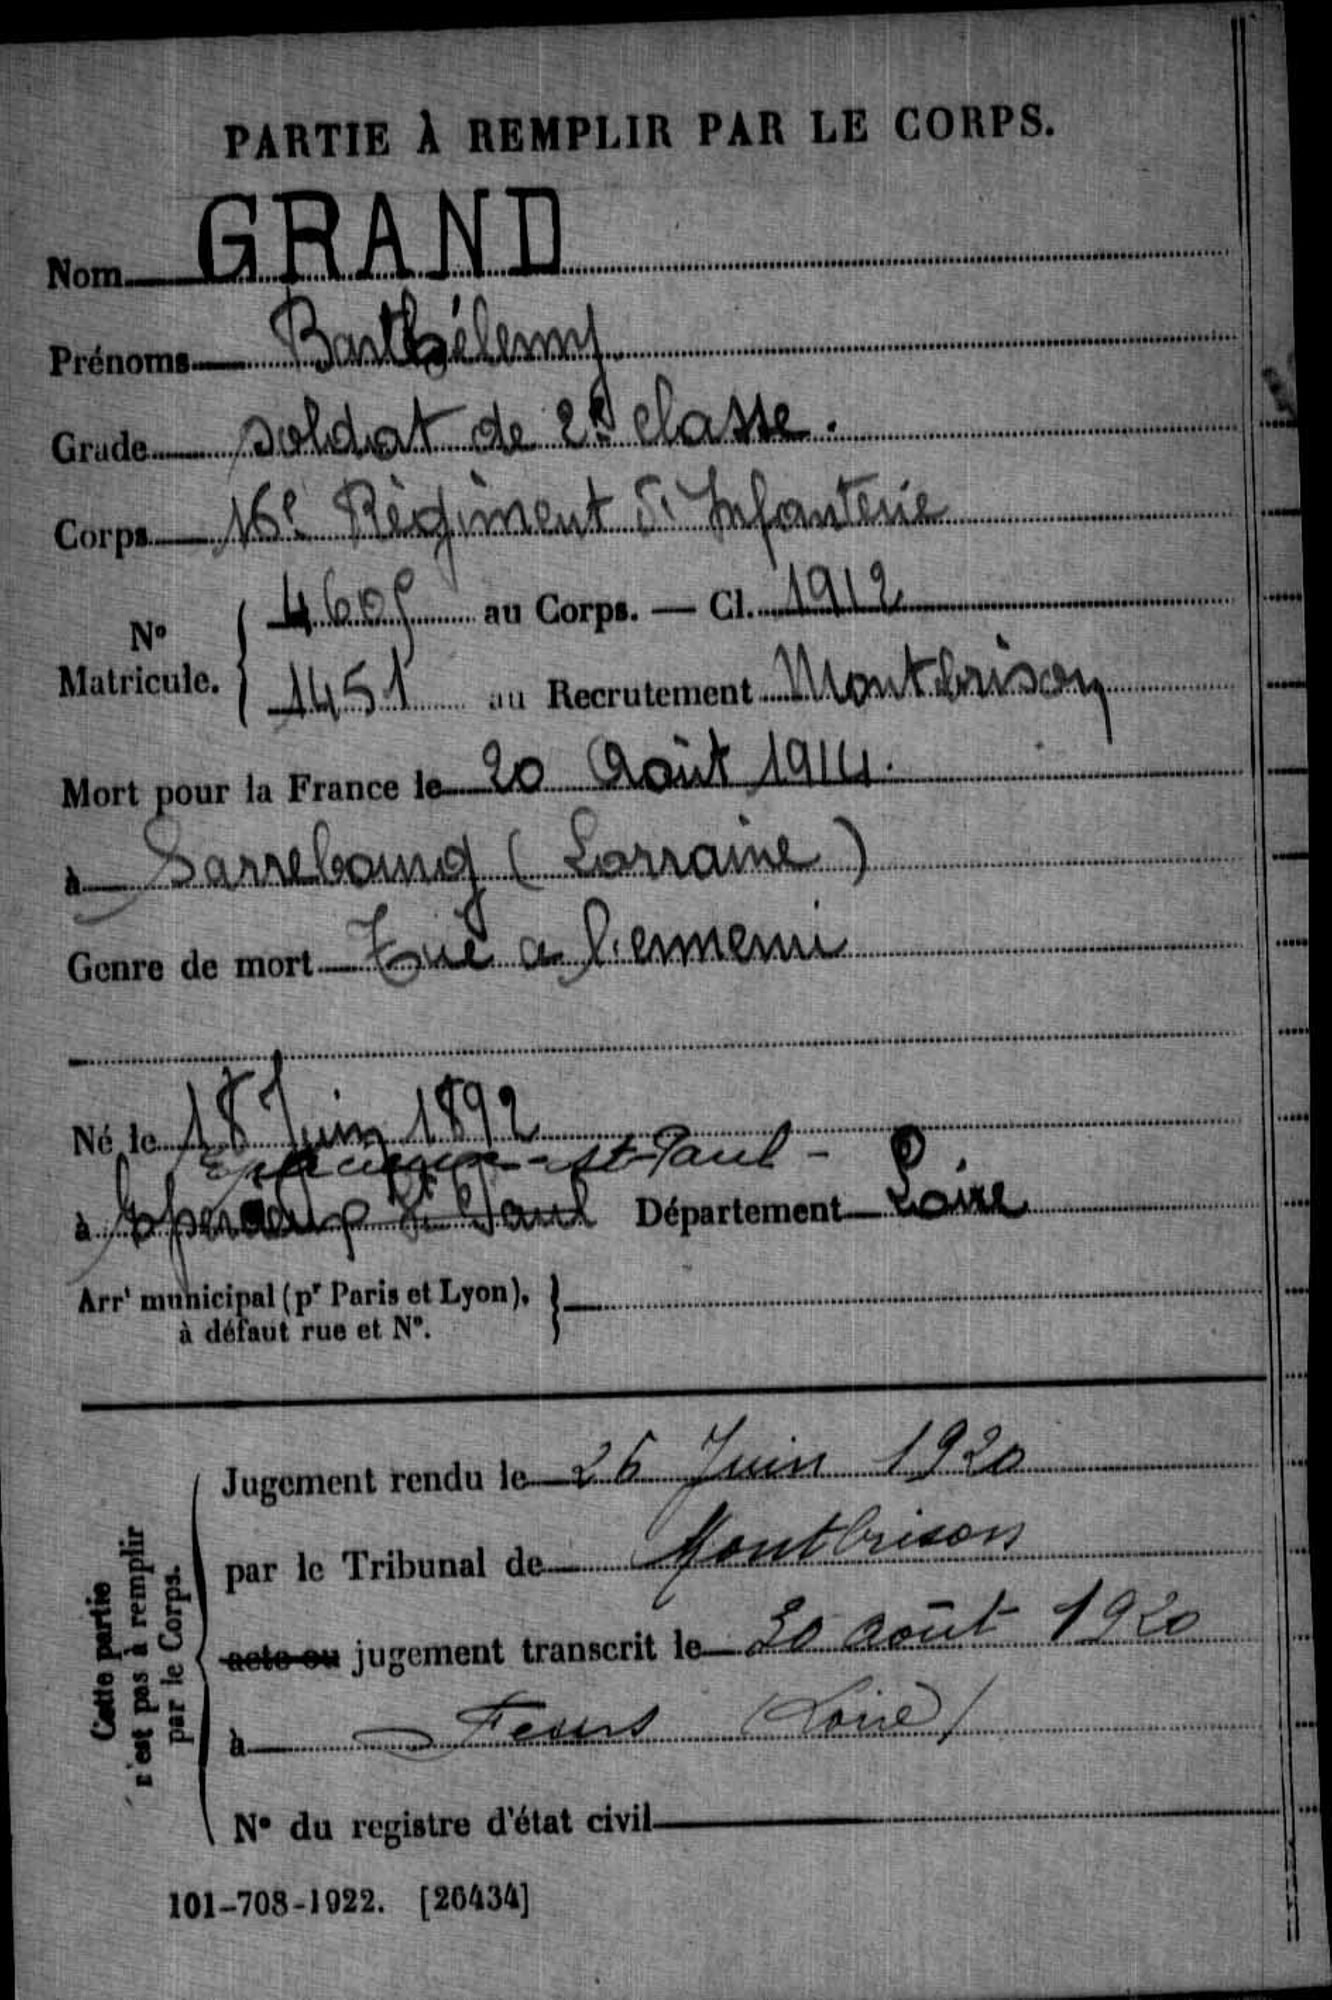 PARTIE À REMPLIR PAR LE CORPS.
Nom GRAND
Prénoms Barthélemy
Grade soldat de 2e classe.
Corps 16e Régiment d'Infanterie
No Matricule. 4605 au Corps. — Cl. 1912
1451 au Recrutement Montbrison
Mort pour la France le 20 Août 1914.
à Sarrebourg (Lorraine)
Genre de mort Tué a l'ennemi
Né le 18 Juin 1892
St-Paul -
à St Paul Département Loire
Arrt municipal (pr Paris et Lyon),
à défaut rue et No.
Cette partie
n'est pas à remplir
par le Corps.
Jugement rendu le 26 Juin 1920
par le Tribunal de Montbrison
acte ou jugement transcrit le 30 août 1920
à Feurs (Loire)
No du registre d'état civil
101-708-1922. [26434]